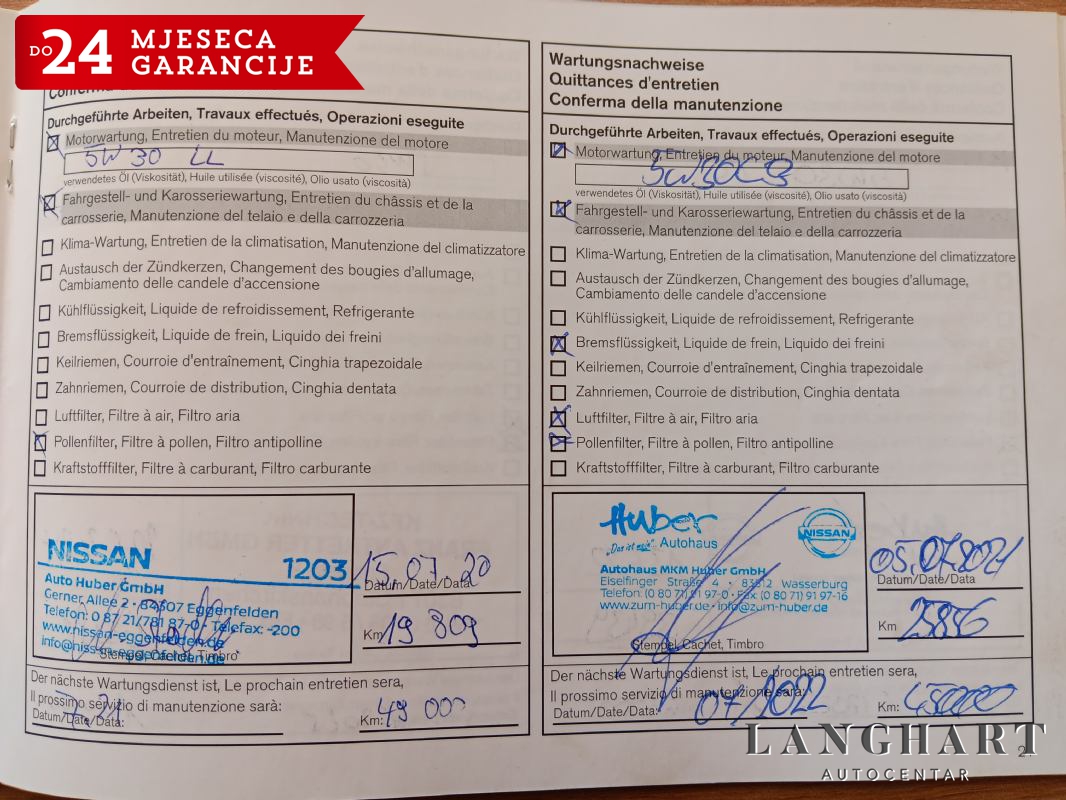 DO 24 MJESECA
GARANCIJE
Durchgeführte Arbeiten, Travaux effectués, Operazioni eseguite
Motorwartung, Entretien du moteur, Manutenzione del motore
5W30 LL
verwendetes Öl (Viskosität), Huile utilisée (viscosité), Olio usato (viscosità)
Fahrgestell- und Karosseriewartung, Entretien du châssis et de la
carrosserie, Manutenzione del telaio e della carrozzeria
Klima-Wartung, Entretien de la climatisation, Manutenzione del climatizzatore
Austausch der Zündkerzen, Changement des bougies d'allumage,
Cambiamento delle candele d'accensione
Kühlflüssigkeit, Liquide de refroidissement, Refrigerante
Bremsflüssigkeit, Liquide de frein, Liquido dei freini
Keilriemen, Courroie d'entraînement, Cinghia trapezoidale
Zahnriemen, Courroie de distribution, Cinghia dentata
Luftfilter, Filtre à air, Filtro aria
Pollenfilter, Filtre à pollen, Filtro antipolline
Kraftstofffilter, Filtre à carburant, Filtro carburante
NISSAN 1203
Auto Huber GmbH
Gerner Allee 2 · 84307 Eggenfelden
Telefon: 0 87 21/781 87-0 · Telefax: -200
www.nissan-eggenfelden.de
info@nissan-eggenfelden.de
Stempel, Cachet, Timbro
15.07.20
Datum/Date/Data
Km 19 809
Der nächste Wartungsdienst ist, Le prochain entretien sera,
Il prossimo servizio di manutenzione sarà:
Datum/Date/Data:
Km: 49 000
Wartungsnachweise
Quittances d'entretien
Conferma della manutenzione
Durchgeführte Arbeiten, Travaux effectués, Operazioni eseguite
Motorwartung, Entretien du moteur, Manutenzione del motore
5W30C3
verwendetes Öl (Viskosität), Huile utilisée (viscosité), Olio usato (viscosità)
Fahrgestell- und Karosseriewartung, Entretien du châssis et de la
carrosserie, Manutenzione del telaio e della carrozzeria
Klima-Wartung, Entretien de la climatisation, Manutenzione del climatizzatore
Austausch der Zündkerzen, Changement des bougies d'allumage,
Cambiamento delle candele d'accensione
Kühlflüssigkeit, Liquide de refroidissement, Refrigerante
Bremsflüssigkeit, Liquide de frein, Liquido dei freini
Keilriemen, Courroie d'entraînement, Cinghia trapezoidale
Zahnriemen, Courroie de distribution, Cinghia dentata
Luftfilter, Filtre à air, Filtro aria
Pollenfilter, Filtre à pollen, Filtro antipolline
Kraftstofffilter, Filtre à carburant, Filtro carburante
Huber NISSAN
„Das ist mein" Autohaus
Autohaus MKM Huber GmbH
Eiselfinger Straße 4 · 83512 Wasserburg
Telefon: (0 80 71) 91 97-0 · Fax: (0 80 71) 91 97-16
www.zum-huber.de · info@zum-huber.de
Stempel, Cachet, Timbro
05.07.2021
Datum/Date/Data
Km
Der nächste Wartungsdienst ist, Le prochain entretien sera,
Il prossimo servizio di manutenzione sarà:
Datum/Date/Data: 07/2022
Km: 45000
LANGHART
AUTOCENTAR